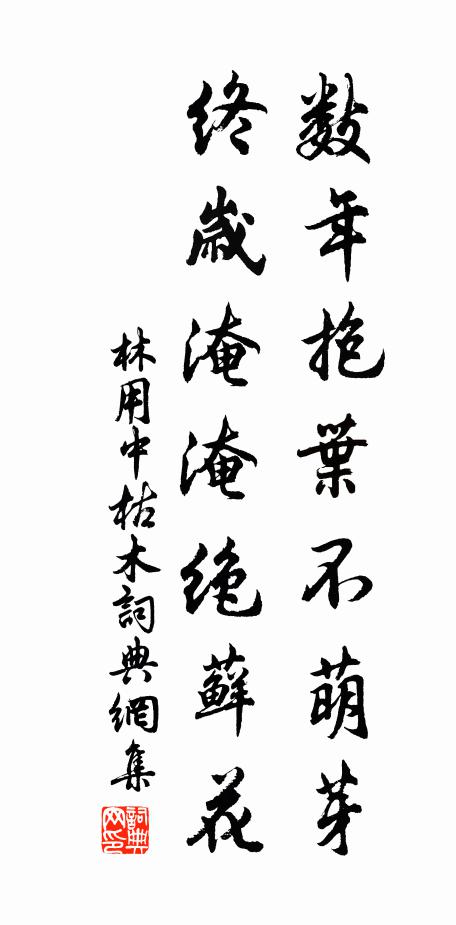 数年抱葉不萌芽
終歲淹淹絶蘚花
林用中枯木詞典網集
詞典网印